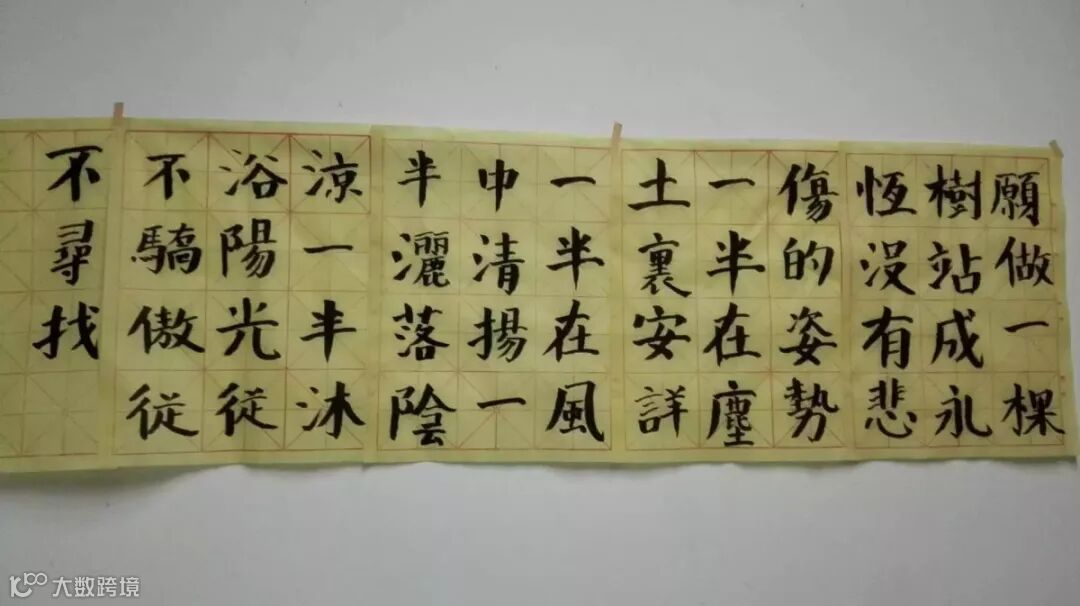 願做一棵
樹站成永
恆没有悲
傷的姿勢
一半在塵
土裏安詳
一半在風
中清揚一
半灑落陰
涼一半沐
浴陽光從
不驕傲從
不尋找
大数跨境